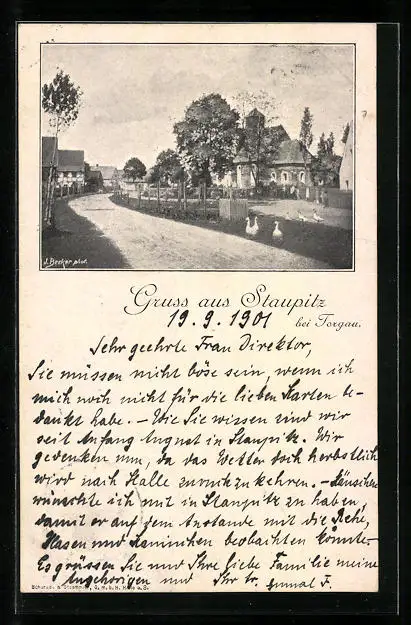 J. Becker phot.
Gruss aus Staupitz
bei Torgau.
19. 9. 1901
Sehr geehrte Frau Direktor,
Sie müssen nicht böse sein, wenn ich
mich noch nicht für die lieben Karten be-
dankt habe. – Wie Sie wissen sind wir
seit Anfang August in Staupitz. Wir
gedenken nun, da das Wetter doch herbstlich
wird nach Halle zurückzukehren. –
wünschte ich mit in Staupitz zu haben,
damit er auf dem Anstande mit die Rehe,
Hasen und Kaninchen beobachten könnte.
Es grüssen Sie und Ihre liebe Familie meine
Angehörigen und Ihr tr. F.